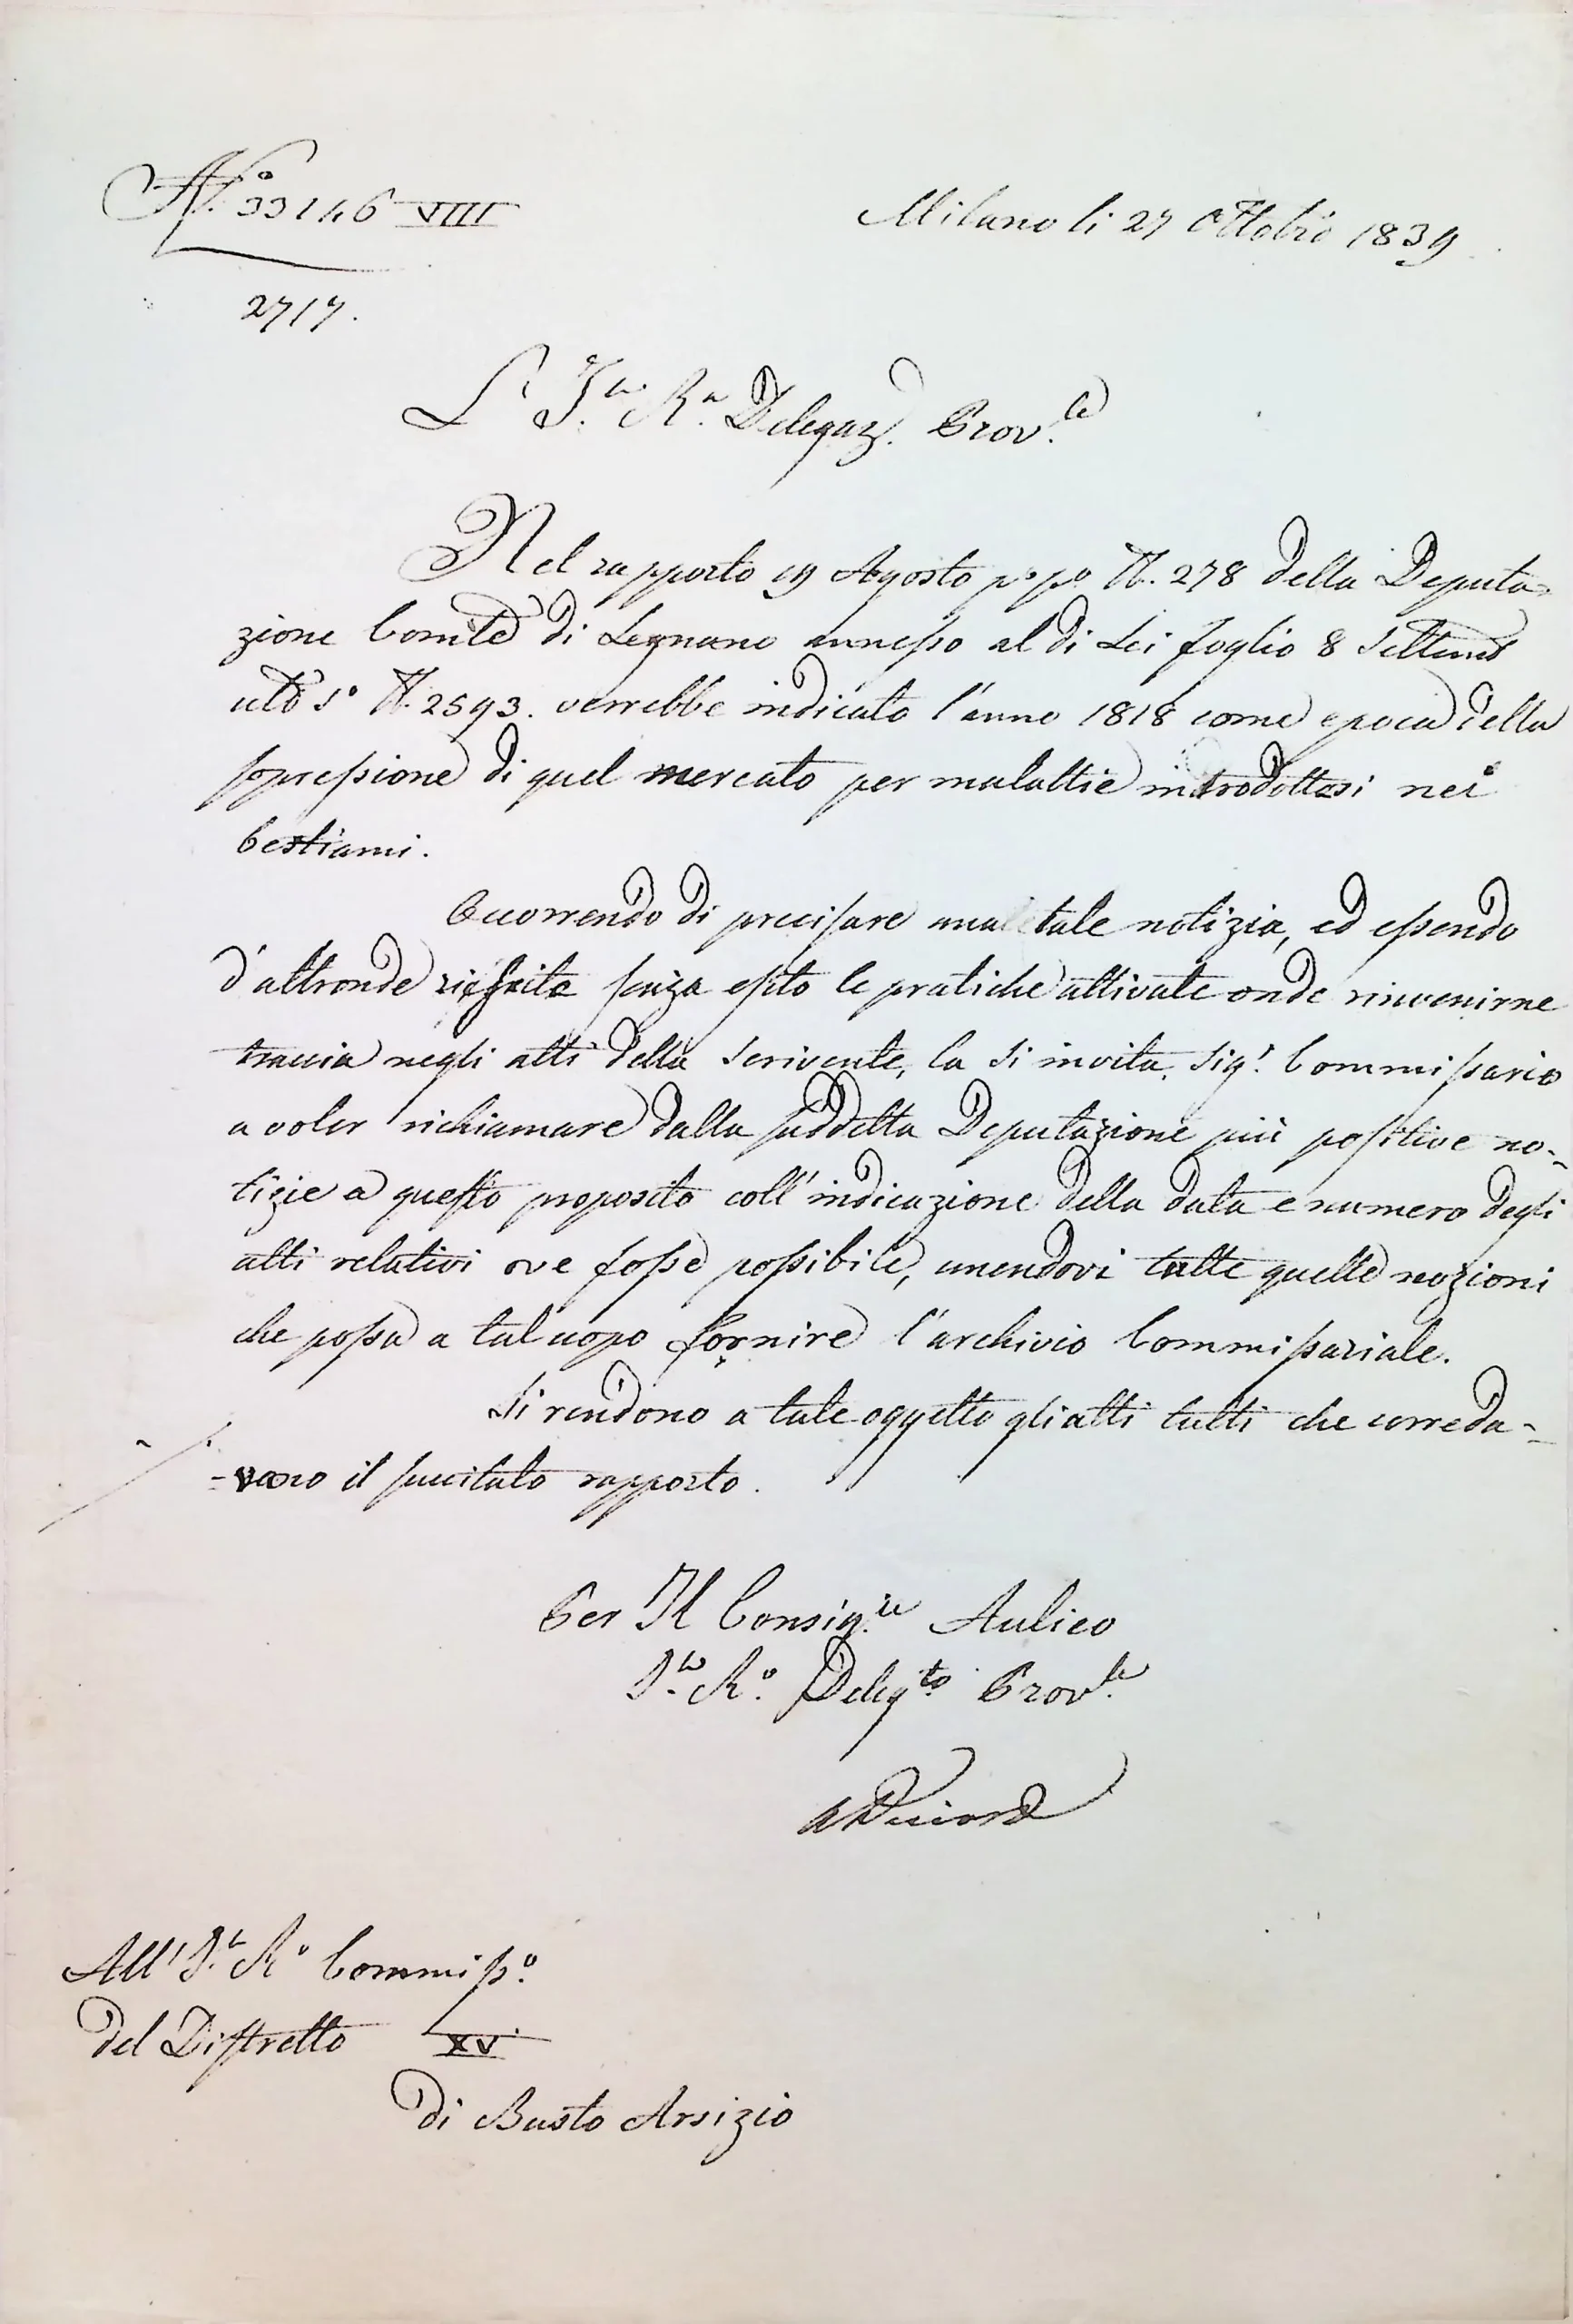 N.° 33146 VIII
Milano li 27 Ottobre 1839
2717.
L' I.le R.a Delegaz. Prov.le
Nel rapporto 19 Agosto p.° p.° N. 278 della Deputa-
zione Com.le di Legnano annesso al di Lei foglio 8 Settembre
N. 2593. verrebbe indicato l'anno 1818 come epoca della
sopressione di quel mercato per malattie introdottesi nei
bestiami.
Occorrendo di precisare una tale notizia, ed essendo
d'altronde riescite senza esito le pratiche attivate onde rinvenirne
traccia negli atti della scrivente, la si invita, Sig.r Commissario
a voler richiamare dalla suddetta Deputazione più positive no-
tizie a questo proposito coll'indicazione della data e numero degli
atti relativi ove fosse possibile, unendovi tutte quelle nozioni
che possa a tal uopo fornire l'archivio Commissariale.
Si rendono a tale oggetto gli atti tutti che correda-
-vano il succitato rapporto.
Per Il Consig.re Aulico
I.le R.° Deleg.to Prov.le
All' I.le R.° Commiss.°
del Distretto XV
di Busto Arsizio